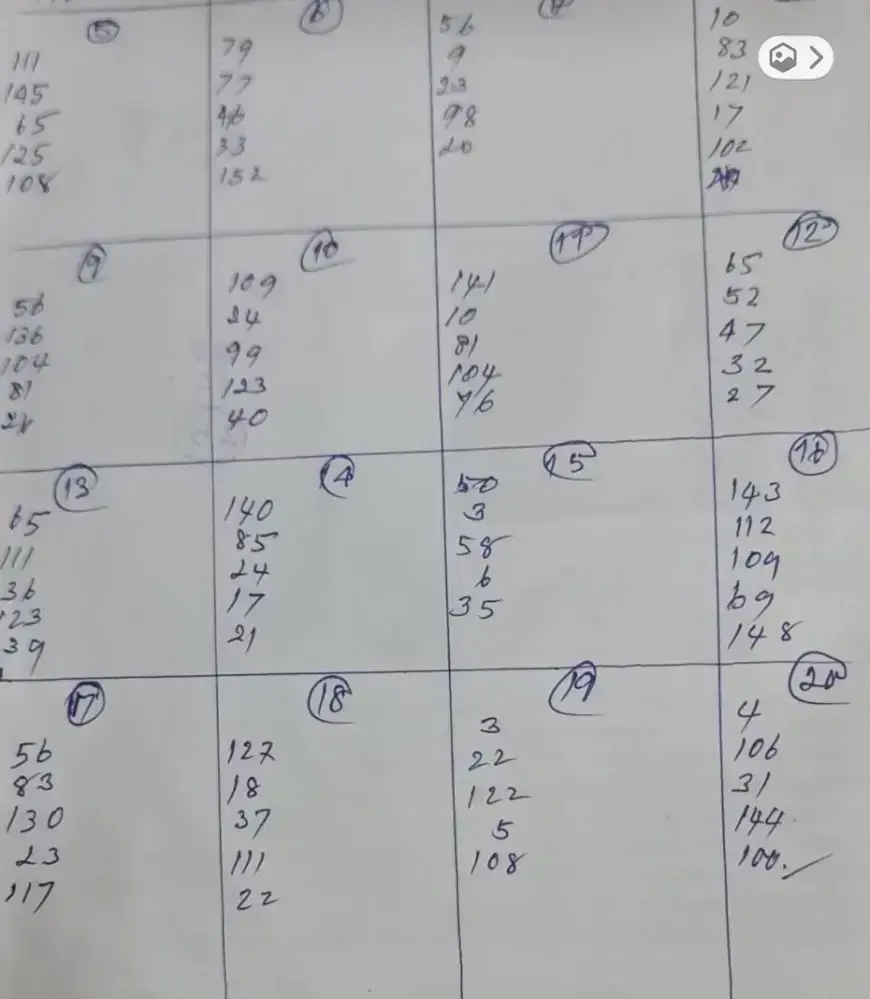 5
111
145
65
125
108
6
79
77
46
33
152
56
9
23
98
20
10
83
121
17
102
9
56
136
104
81
10
109
24
99
123
40
11
141
10
81
104
76
12
65
52
47
32
27
13
65
111
36
123
39
14
140
85
24
17
21
15
50
3
58
6
35
16
143
112
109
69
148
17
56
83
130
23
117
18
127
18
37
111
22
19
3
22
122
5
108
20
4
106
31
144
100.